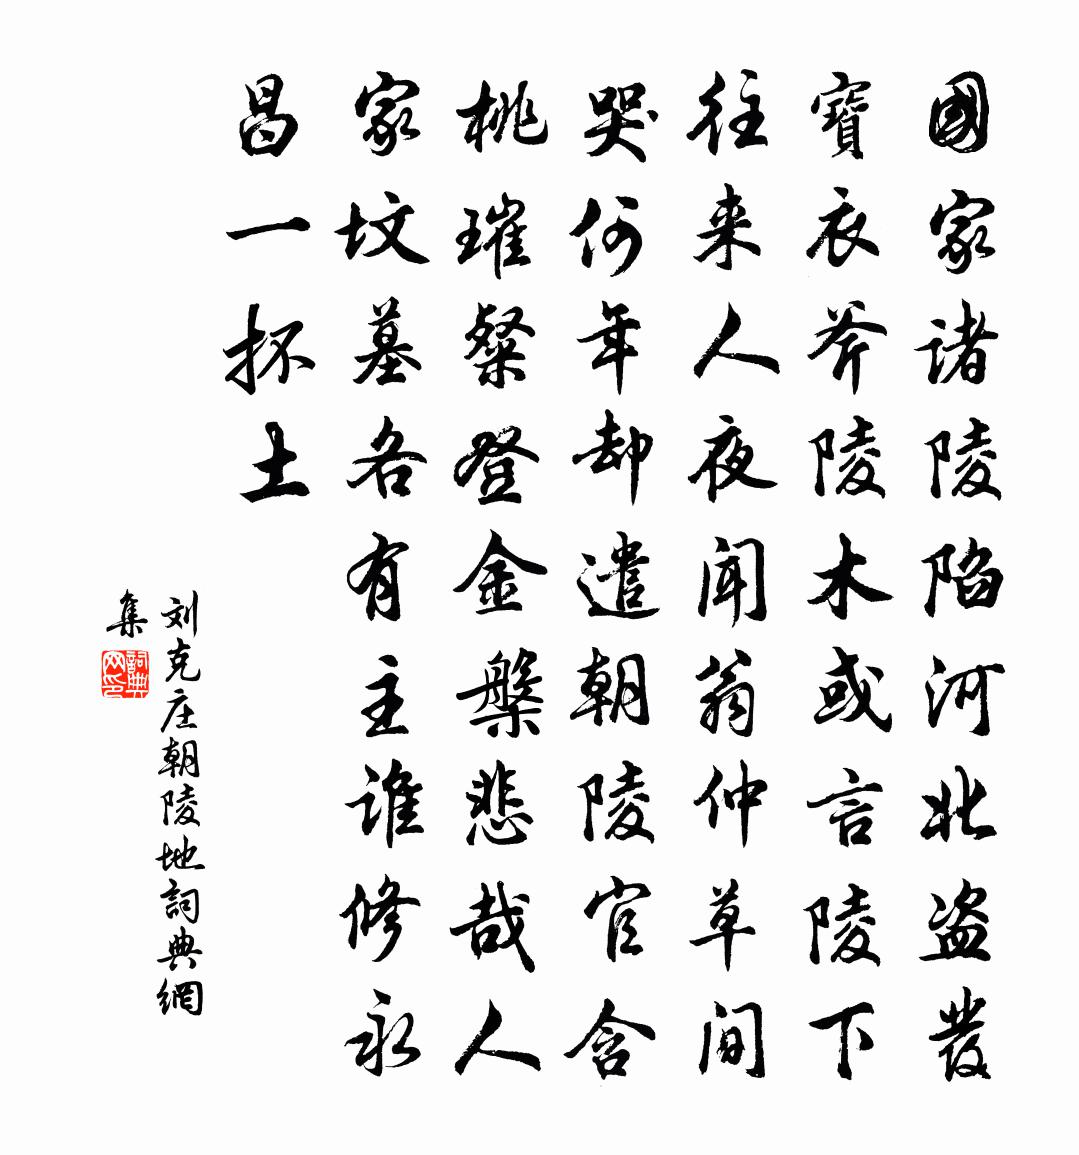 國家诸陵陷河北盗發
寶衣斧陵木或言陵下
往来人夜闻翁仲草间
哭何年却遣朝陵官含
桃璀粲登金槃悲哉人
家坟墓各有主谁修永
昌一抔土
刘克庄朝陵地詞典網
集
詞典网印